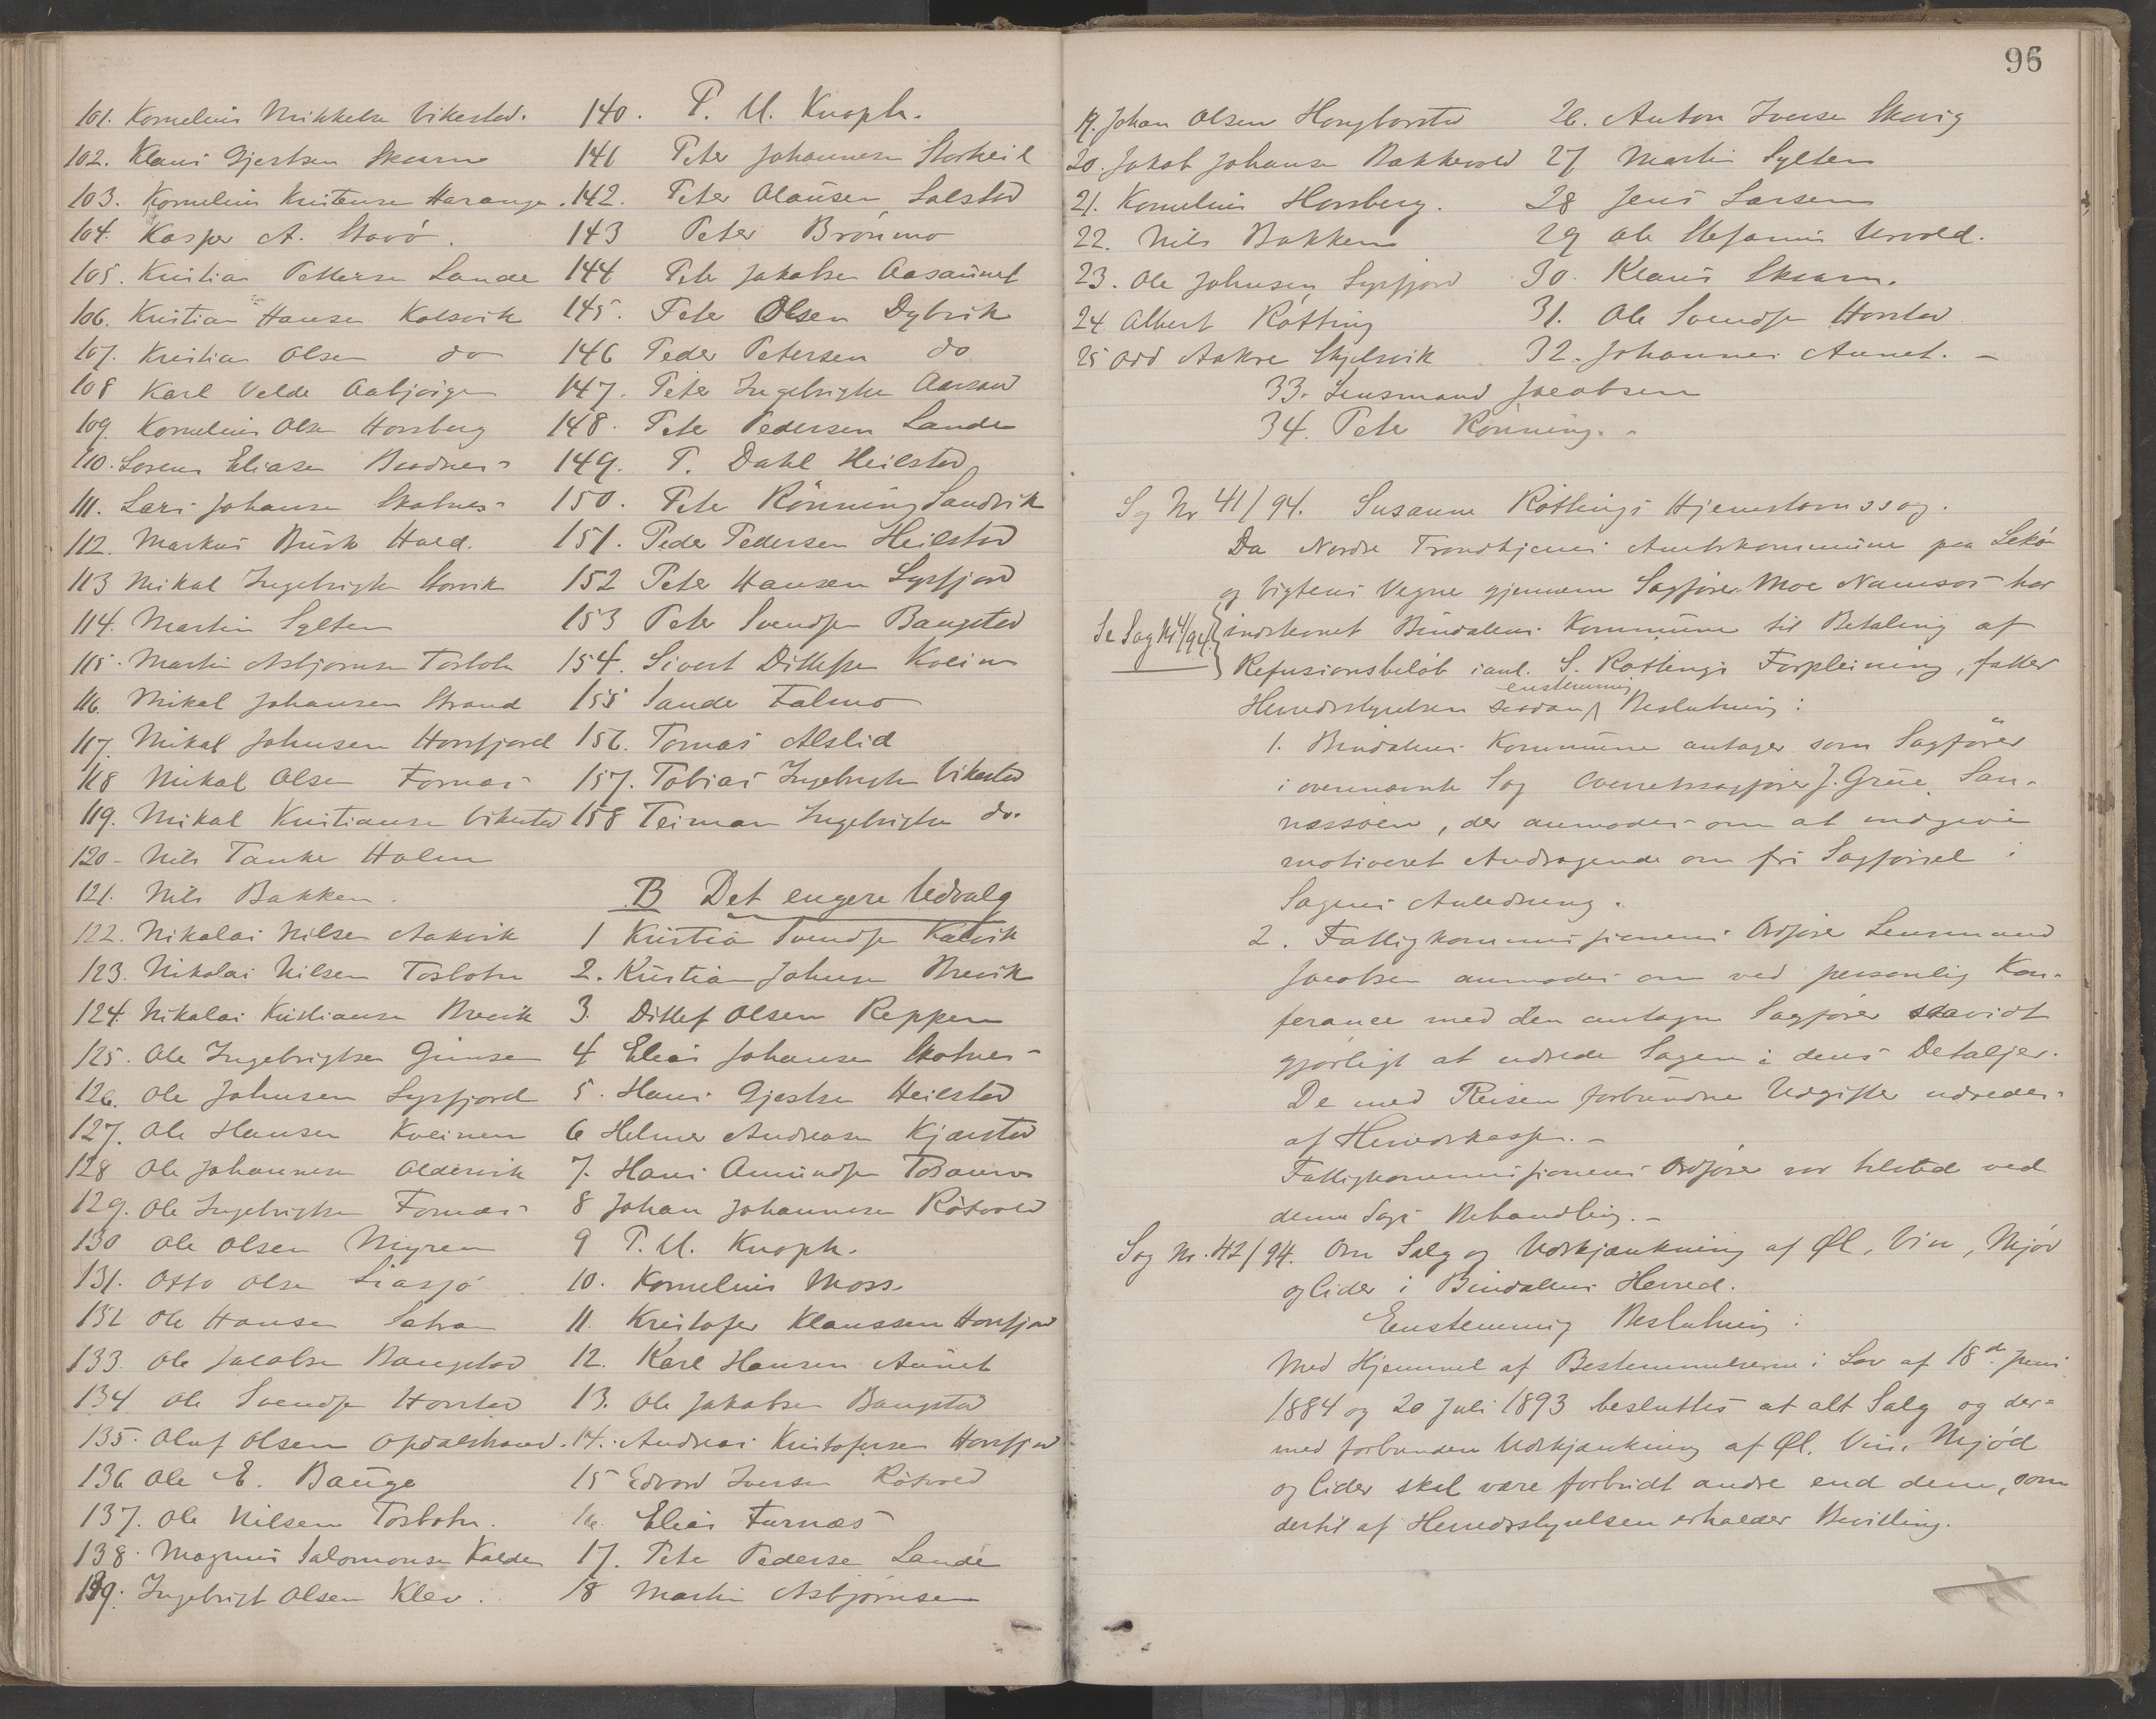 101. Kornelius Mikkelsen Vikestad.
102. Klaus Gjertsen Skaarn
103. Kornelius Kristensen Harange.
104. Kasper A. Stavö.
105. Kristian Pettersen Lande
106. Kristian Hansen Kalsvik
107. Kristian Olsen do
108 Karl Velde Aabjörgen
109. Kornelius Olsen Horsberg
110. Lorens Eliasen Bindnes
111. Lars Johansen Skotnes
112. Markus Busk Hald.
113 Mikal Ingebrigtsen Storvik
114. Martin Sylten
115. Martin Asbjörnsen Tosbotn
116. Mikal Johansen Strand
117. Mikal Johnsen Horsfjord
118 Mikal Olsen Fornæs
119. Mikal Kristiansen Vikestad
120 - Nils Tanke Holm
121. Nils Bakken.
122. Nikolai Nilsen Aakvik
123. Nikolai Nilsen Tosbotn
124. Nikolai Kristiansen Brevik
125. Ole Ingebrigtsen Gimsen
126. Ole Johnsen Syrfjord
127. Ole Hansen Kveinen
128 Ole Johannesen Oldervik
129. Ole Ingebrigtsen Fornæs
130 Ole Olsen Myren
131. Otto Olsen Liasjö
132 Ole Hansen Sætran
133. Ole Jacobsen Bangstad
134 Ole Svendsen Horstad
135. Oluf Olsen Opdalstrand.
136 Ole E. Bauge
137. Ole Nilsen Tosbotn.
138. Magnus Salomonsen Kalde
139. Ingebrigt Olsen Klev.
140. P. U. Knoph.
141 Peter Johannesen Storheil
142. Peter Olausen Salstad
143 Peter Brönmo
144 Peter Jakobsen Aasaunet
145. Peter Olsen Dybvik
146 Peder Petersen do
147. Peter Ingebrigtsen Aarsand
148. Peter Pedersen Lande
149. P. Dahl Heilstad
150. Peter Rönning Sandvik
151. Peder Pedersen Heilstad
152 Peter Hansen Syrfjord
153 Peter Svendsen Bangstad
154. Sivert Ditlefsen Kvein
155 Sander Falmo
156. Tomas Alslid
157. Tobias Ingebrigtsen Vikestad
158 Teiman Ingebrigtsen do.
B Det engere Udvalg
1 Kristian Svendsen Kalvik
2. Kristian Johnsen Brevik
3. Ditlef Olsen Reppen
4 Elias Johansen Skotnes
5. Hans Gjertsen Heilstad
6 Helmer Andreasen Kjærstad
7. Hans Amundsen Tosaunet
8 Johan Johannesen Rötvold
9 P. U. Knoph.
10. Kornelius Moss.
11. Kristofer Klaussen Horsfjord
12. Karl Hansen Aunet
13. Ole Jakobsen Bangstad
14. Andreas Kristofersen Horsfjord
15 Edvard Iversen Rötvold
16. Elias Furnæs
17. Peter Pedersen Lande
18 Martin Asbjörnsen
96
19. Johan Olsen Hongborstad
20. Jakob Johansen Bakkevold
21. Kornelius Horsberg.
22. Nils Bakken
23. Ole Johnsen Syrfjord
24 Albert Rötting
25 Odd Aakre Skjelsvik
26. Anton Iversen Skavig
27 Martin Sylten
28 Jens Larsen
29 Ole Stefanus Urvold.
30. Klaus Skaarn.
31. Ole Svendsen Horstad
32. Johannes Aunet. -
33. Lensmand Jacobsen
34. Peter Rönning. -
Sag Nr 41/94. Susanne Röttings Hjemstavnssag.
Da Nordre Trondhjems Amtskommune paa Lekö
og Vigtens Vegne gjennem Sagförer Moe Namsos har
Se Sag Nr 4/94 indstevnet Bindalens Kommune til Betaling af
Refusionsbelöb i anl. S. Röttings Forpleining, fatter
Herredsstyrelsen saadan enstemmig Beslutning:
1. Bindalens Kommune antager som Sagförer
i overnævnte Sag Overretssagförer J. Grüe, San-
næssöen, der anmodes om at indgive
motiveret Andragende om fri Sagförsel i
Sagens Anledning.
2. Fattigkommissionens Ordförer Lensmand
Jacobsen anmodes om ved personlig Kon-
ferance med den antagne Sagförer saavidt
gjörligt at udrede Sagen i dens Detaljer.
De med Reisen forbundne Udgifter udredes
af Herredskassen. -
Fattigkommissionens Ordförer var tilsted ved
denne Sags Behandling. -
Sag Nr. 42/94. Om Salg og Udskjænkning af Øl, Vin, Mjöd
og Cider i Bindalens Herred.
Enstemmig Beslutning:
Med Hjemmel af Bestemmelserne i Lov af 18de Juni
1884 og 20 Juli 1893 besluttes at alt Salg og der-
med forbunden Udskjænkning af Øl, Vin, Mjöd
og Cider skal være forbudt andre end dem, som
dertil af Herredsstyrelsen erholder Bevilling.